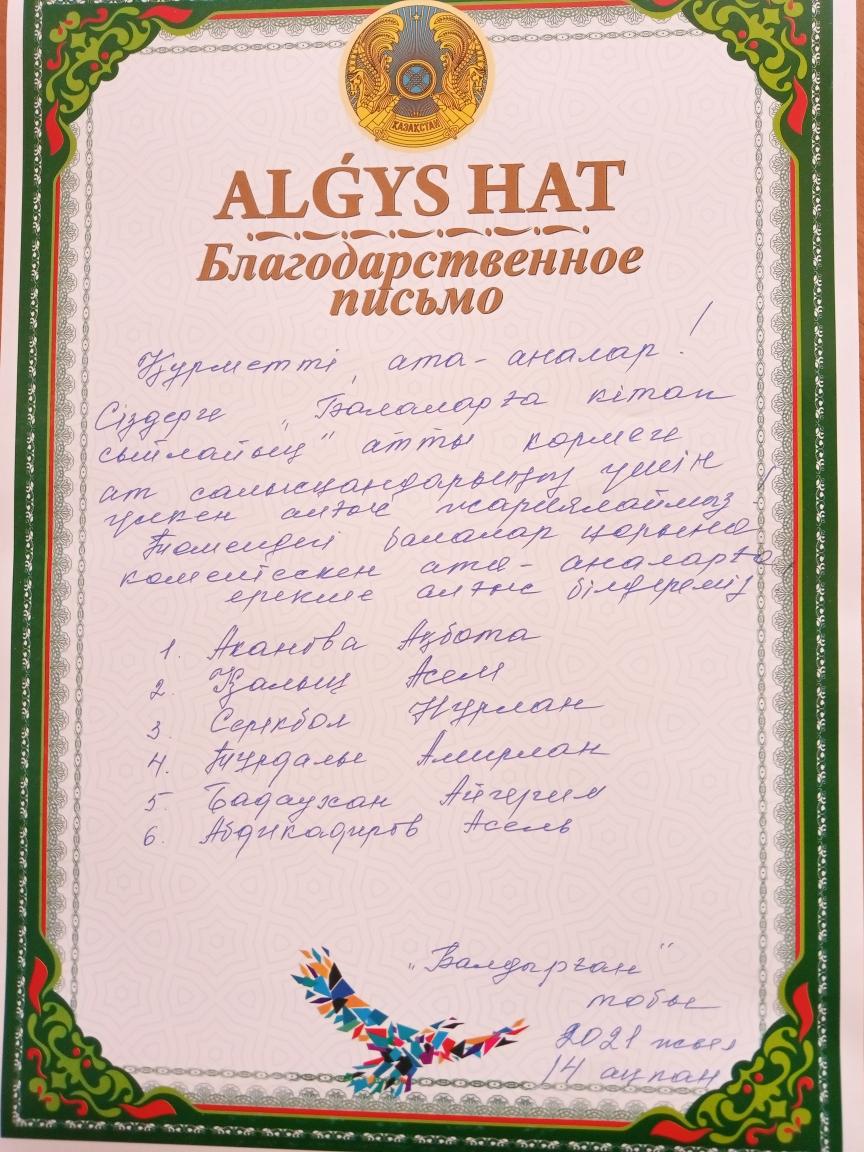 ҚАЗАҚСТАН
ALǴYS HAT
Благодарственное
письмо
Құрметті ата-аналар!
Сіздерге "Балаларға кітап
сыйлайық" атты көрмеге
ат салысқандарыңыз үшін
үлкен алғыс жариялаймыз!
Төмендегі балалар қорына
көмектескен ата-аналарға,
ерекше алғыс білдереміз
1. Аканова Ақбота
2. Қалың Асем
3. Серікбол Нұрлан
4. Тұрдалы Амирлан
5. Бадаухан Айгерим
6. Абдикадиров Асель
"Балдырған"
тобы
2021 жыл
14 ақпан